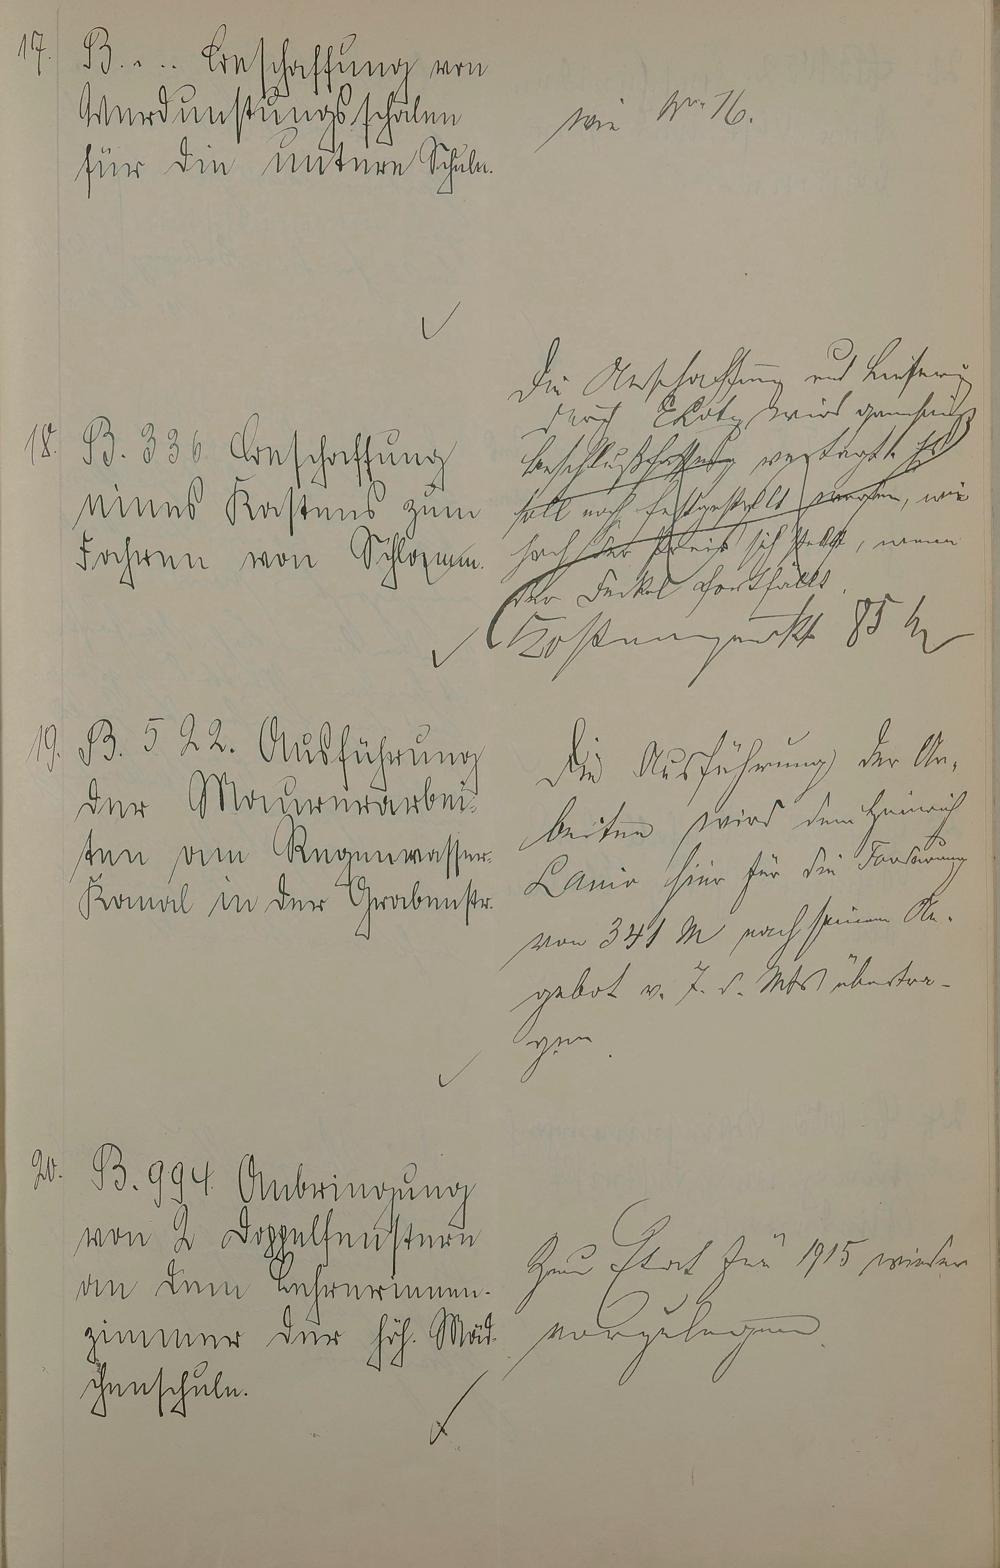 17. B. . . . Beschaffung von
Verdunstungsschalen
für die untere Schule.
wie Nr. 16.
18. B. 336 Beschaffung
eines Kastens zum
Fahren von Schlamm.
Die Anschaffung und Lieferung
durch wird
Beschlußfassung vertagt. Es
soll noch festgestellt werden, wie
hoch der Preis sich stellt, wenn
der Deckel fortfällt.
Kostenpunkt 85 M
19. B. 522. Ausführung
der Maurerarbei-
ten am Regenwasser-
Kanal in der Grabenstr.
Die Ausführung der Ar-
beiten wird dem Heinrich
Lanio hier für die Forderung
von 341 M nach seinem An-
gebot v. 7. d. Mts übertra-
gen.
20. B. 994 Anbringung
von 2 Doppelfenstern
an dem Lehrerinnen-
zimmer der höh. Mäd-
chenschule.
Zum Etat für 1915 wieder
vorzulegen.